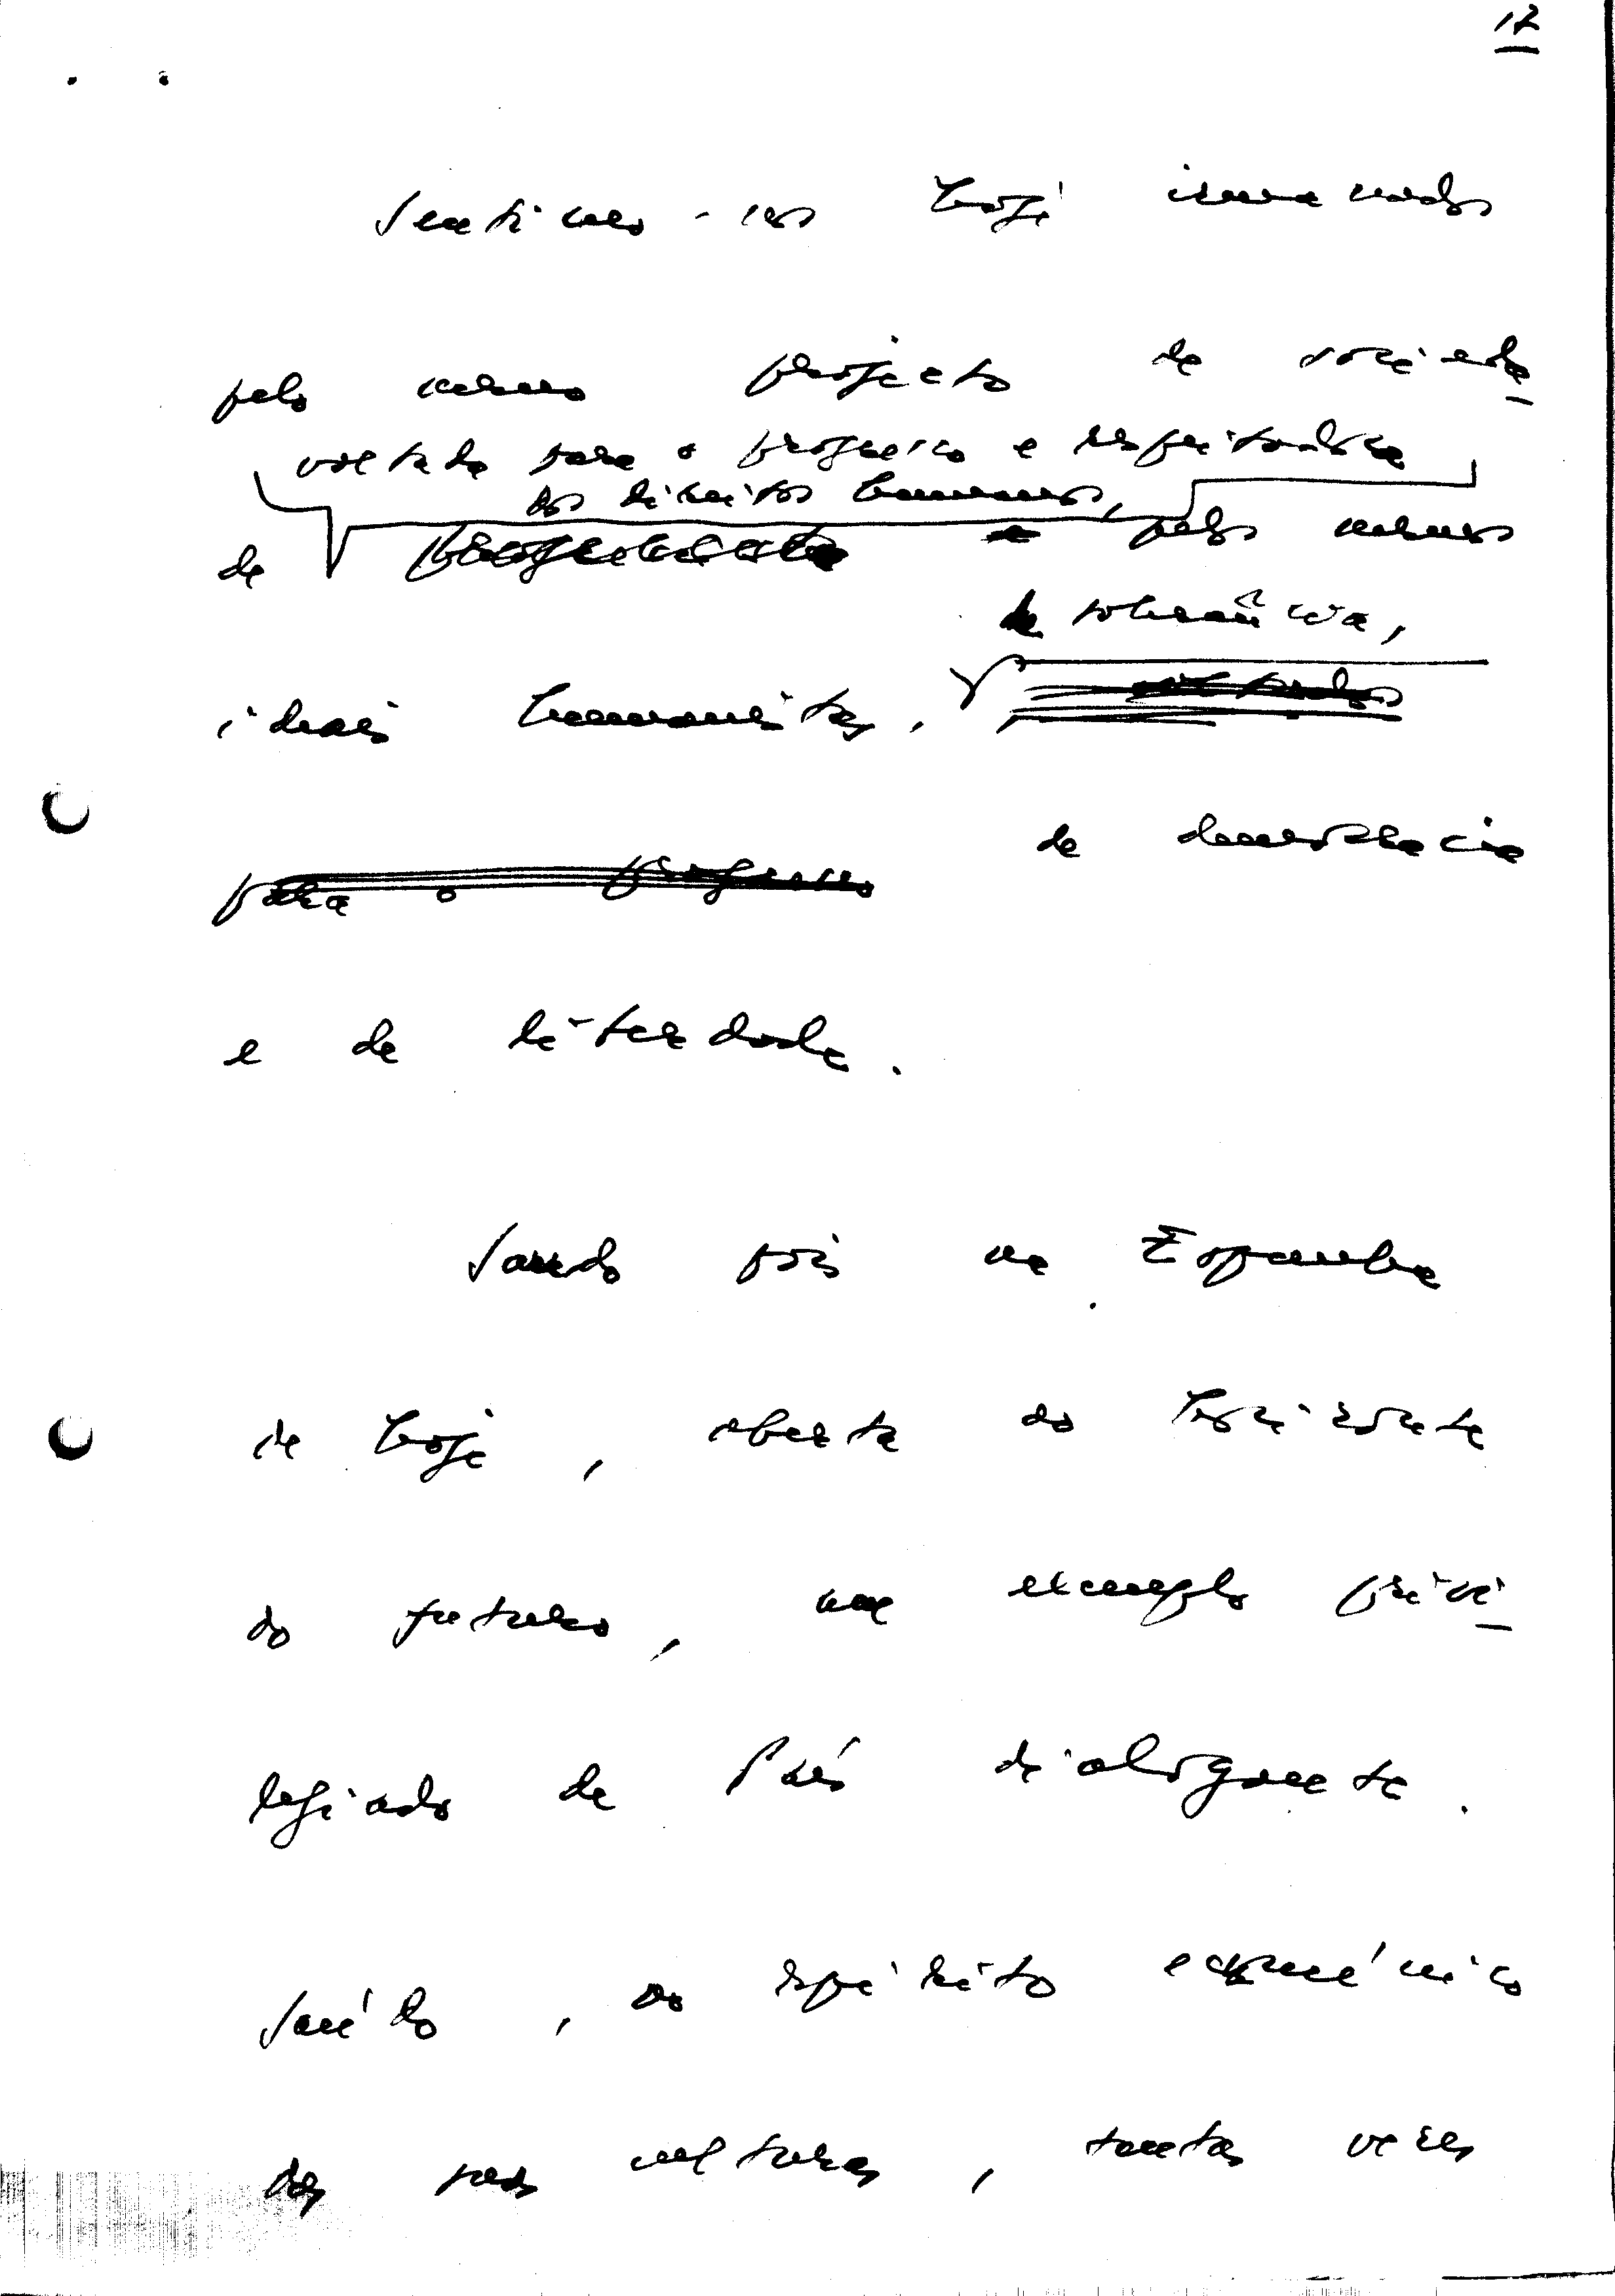 12
Sentimo-nos hoje irmanados
pelo mesmo projecto de socieda
voltada para o progresso e respeitadora
dos direitos humanos,
de progressista e pelos mesmos
de tolerância,
ideais humanistas, voltados
para o progresso de democracia
e de liberdade.
Saúdo pois na Espanha
de hoje, aberta ao horizonte
do futuro, um exemplo privi
legiado de País dialogante.
Saúdo, no espírito ecuménico
das suas culturas, tantas vezes